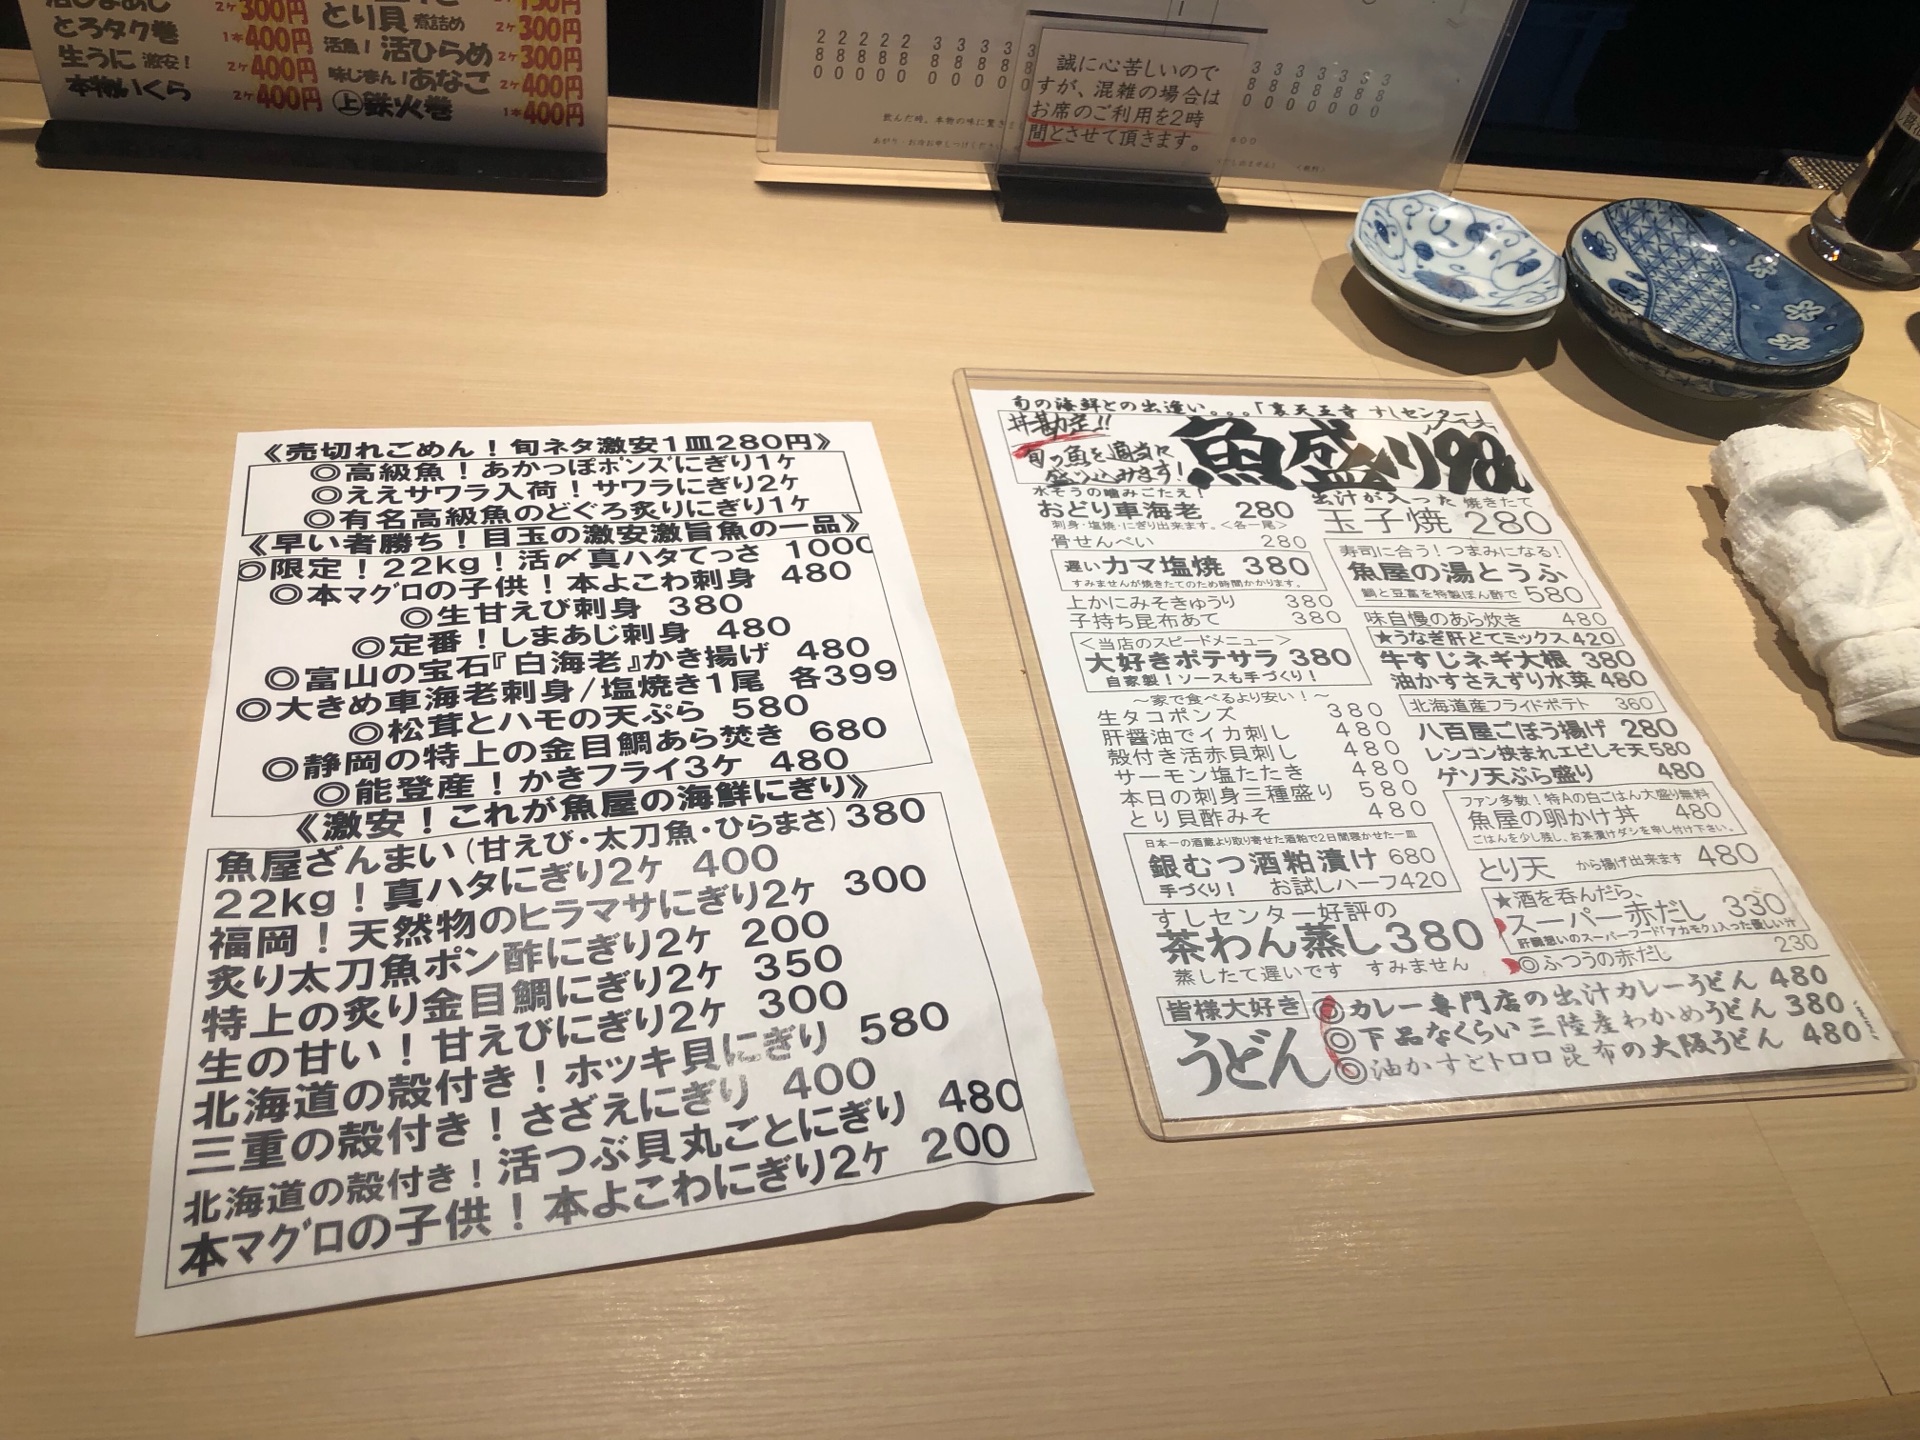 とろタク巻 1本400円
生うに 激安! 2ケ400円
本物いくら 2ケ400円
とり貝 煮詰め 2ケ300円
活魚! 活ひらめ 2ケ300円
味じまん!あなご 2ケ400円
上鉄火巻 1本400円
280 280 280 280 280 380 380 380 380
誠に心苦しいので
すが、混雑の場合は
お席のご利用を2時
間とさせて頂きます。
380 380 380 380 380 380 380
《売切れごめん!旬ネタ激安1皿280円》
◎高級魚!あかっぽポンズにぎり1ケ
◎ええサワラ入荷!サワラにぎり2ケ
◎有名高級魚のどぐろ炙りにぎり1ケ
《早い者勝ち!目玉の激安激旨魚の一品》
◎限定!22kg!活〆真ハタてっさ 1000
◎本マグロの子供!本よこわ刺身 480
◎生甘えび刺身 380
◎定番!しまあじ刺身 480
◎富山の宝石『白海老』かき揚げ 480
◎大きめ車海老刺身/塩焼き1尾 各399
◎松茸とハモの天ぷら 580
◎静岡の特上の金目鯛あら焚き 680
◎能登産!かきフライ3ケ 480
《激安!これが魚屋の海鮮にぎり》
魚屋ざんまい(甘えび・太刀魚・ひらまさ)380
22kg!真ハタにぎり2ケ 400
福岡!天然物のヒラマサにぎり2ケ 300
炙り太刀魚ポン酢にぎり2ケ 200
特上の炙り金目鯛にぎり2ケ 350
生の甘い!甘えびにぎり2ケ 300
北海道の殻付き!ホッキ貝にぎり 580
三重の殻付き!さざえにぎり 400
北海道の殻付き!活つぶ貝丸ごとにぎり 480
本マグロの子供!本よこわにぎり2ケ 200
旬の海鮮との出逢い。。。「裏天王寺 すしセンター」
丼勘定!!
旬の魚を適当に
盛り込みます!
魚盛り98
水そうの噛みごたえ!
おどり車海老 280
刺身・塩焼・にぎり出来ます。<各一尾>
骨せんべい 280
遅い カマ塩焼 380
すみませんが焼きたてのため時間かかります。
上かにみそきゅうり 380
子持ち昆布あて 380
<当店のスピードメニュー>
大好きポテサラ 380
自家製!ソースも手づくり!
~家で食べるより安い!~
生タコポンズ 380
肝醤油でイカ刺し 480
殻付き活赤貝刺し 480
サーモン塩たたき 480
本日の刺身三種盛り 580
とり貝酢みそ 480
日本一の酒蔵より取り寄せた酒粕で2日間寝かせた一皿
銀むつ酒粕漬け 680
手づくり! お試しハーフ420
すしセンター好評の
茶わん蒸し380
蒸したて遅いです すみません
出汁が入った 焼きたて
玉子焼 280
寿司に合う!つまみになる!
魚屋の湯とうふ
鯛と豆富を特製ぽん酢で 580
味自慢のあら炊き 480
★うなぎ肝どてミックス420
牛すじネギ大根 380
油かすさえずり水菜 480
北海道産フライドポテト 360
八百屋ごぼう揚げ 280
レンコン挟まれエビしそ天580
ゲソ天ぷら盛り 480
ファン多数!特Aの白ごはん大盛り無料
魚屋の卵かけ丼 480
ごはんを少し残し、お茶漬けダシを申し付け下さい。
とり天 から揚げ出来ます 480
★酒を呑んだら、
スーパー赤だし 330
肝臓想いのスーパーフード「アカモク」入った優しい汁
◎ふつうの赤だし 230
皆様大好き
うどん
◎カレー専門店の出汁カレーうどん 480
◎下品なくらい三陸産わかめうどん 380
◎油かすとトロロ昆布の大阪うどん 480